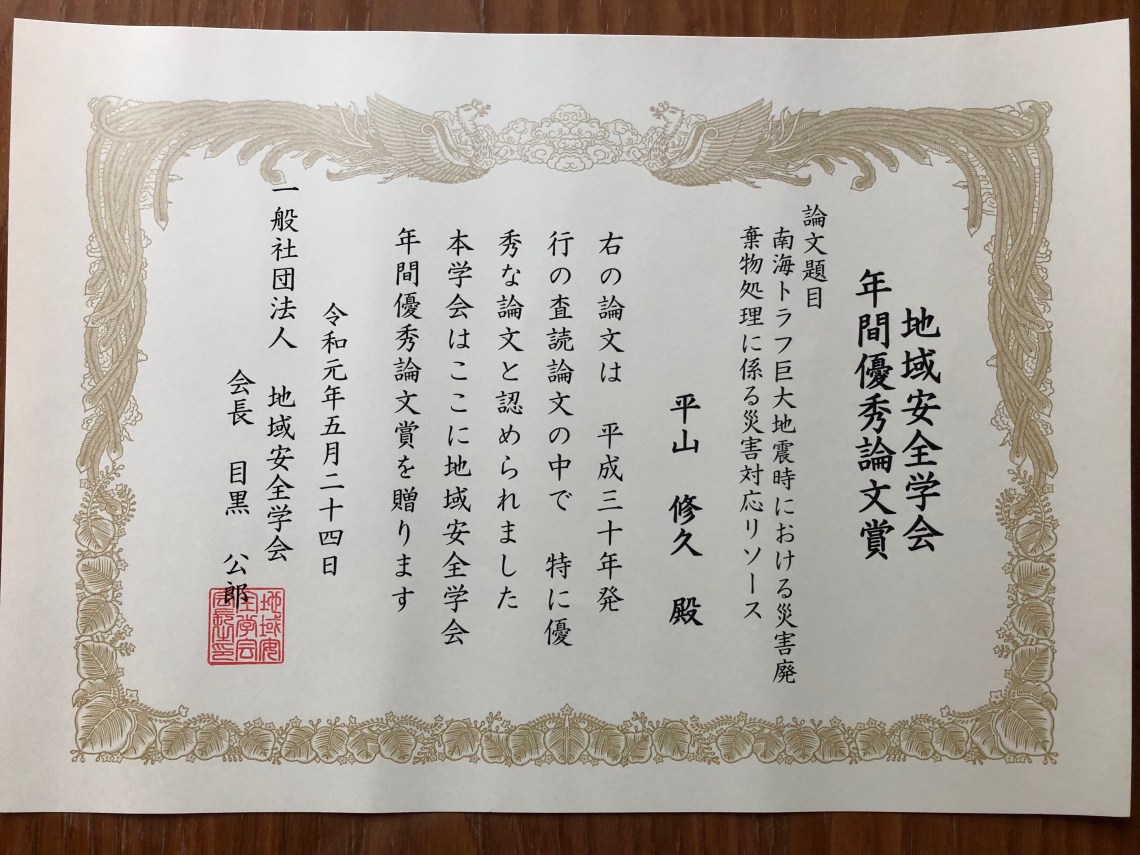 地域安全学会
年間優秀論文賞
論文題目
南海トラフ巨大地震時における災害廃
棄物処理に係る災害対応リソース
平山 修久 殿
右の論文は 平成三十年発
行の査読論文の中で 特に優
秀な論文と認められました
本学会はここに地域安全学会
年間優秀論文賞を贈ります
令和元年五月二十四日
一般社団法人 地域安全学会
会長 目黒 公郎
地域安
全学会
会長之印